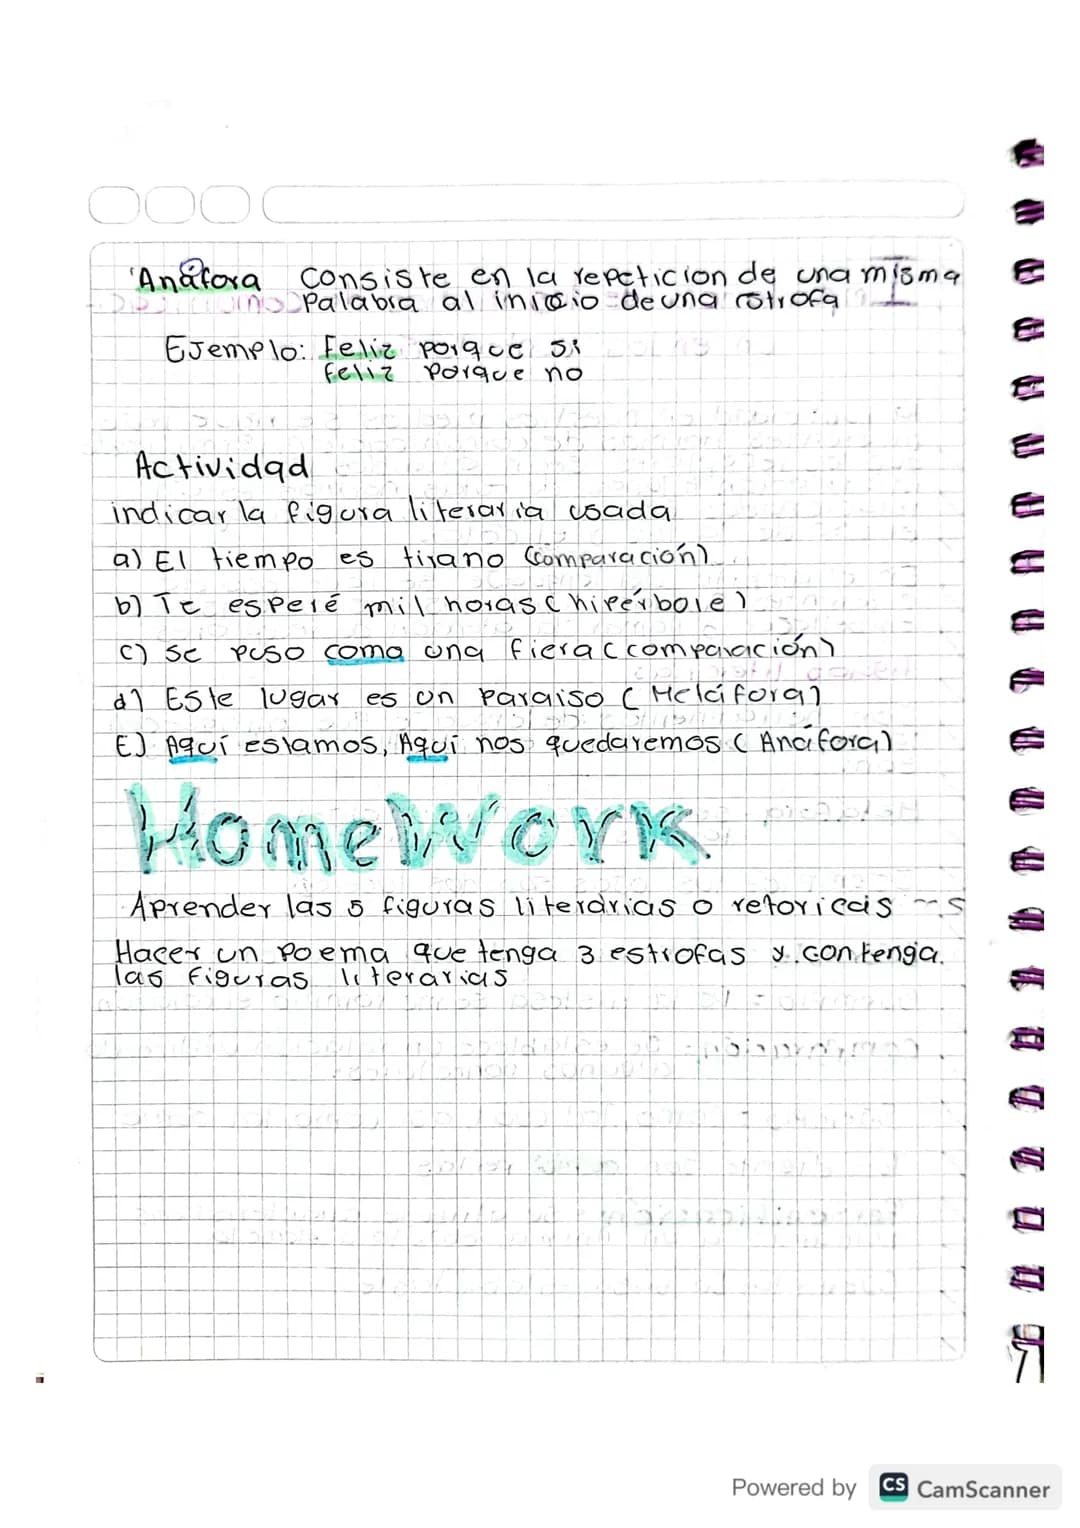 Anáfora Consiste en la repeticion de una misma
Palabra al inicio de una estrofa
Ejemplo: Feliz porque si
feliz porque no
Actividad
indicar la figura literaria usada
a) El tiempo es tirano (comparación)
b) Te esperé mil horas (hipérbole)
c) se puso como una fiera (comparación)
d) Este lugar es un paraiso (Metáfora)
E) Aquí estamos, Aquí nos quedaremos (Anáfora)
HomeWork
Aprender las 5 figuras literarias o retoricas
Hacer un Poema que tenga 3 estrofas y contenga.
las figuras literarias
Powered by CS CamScanner